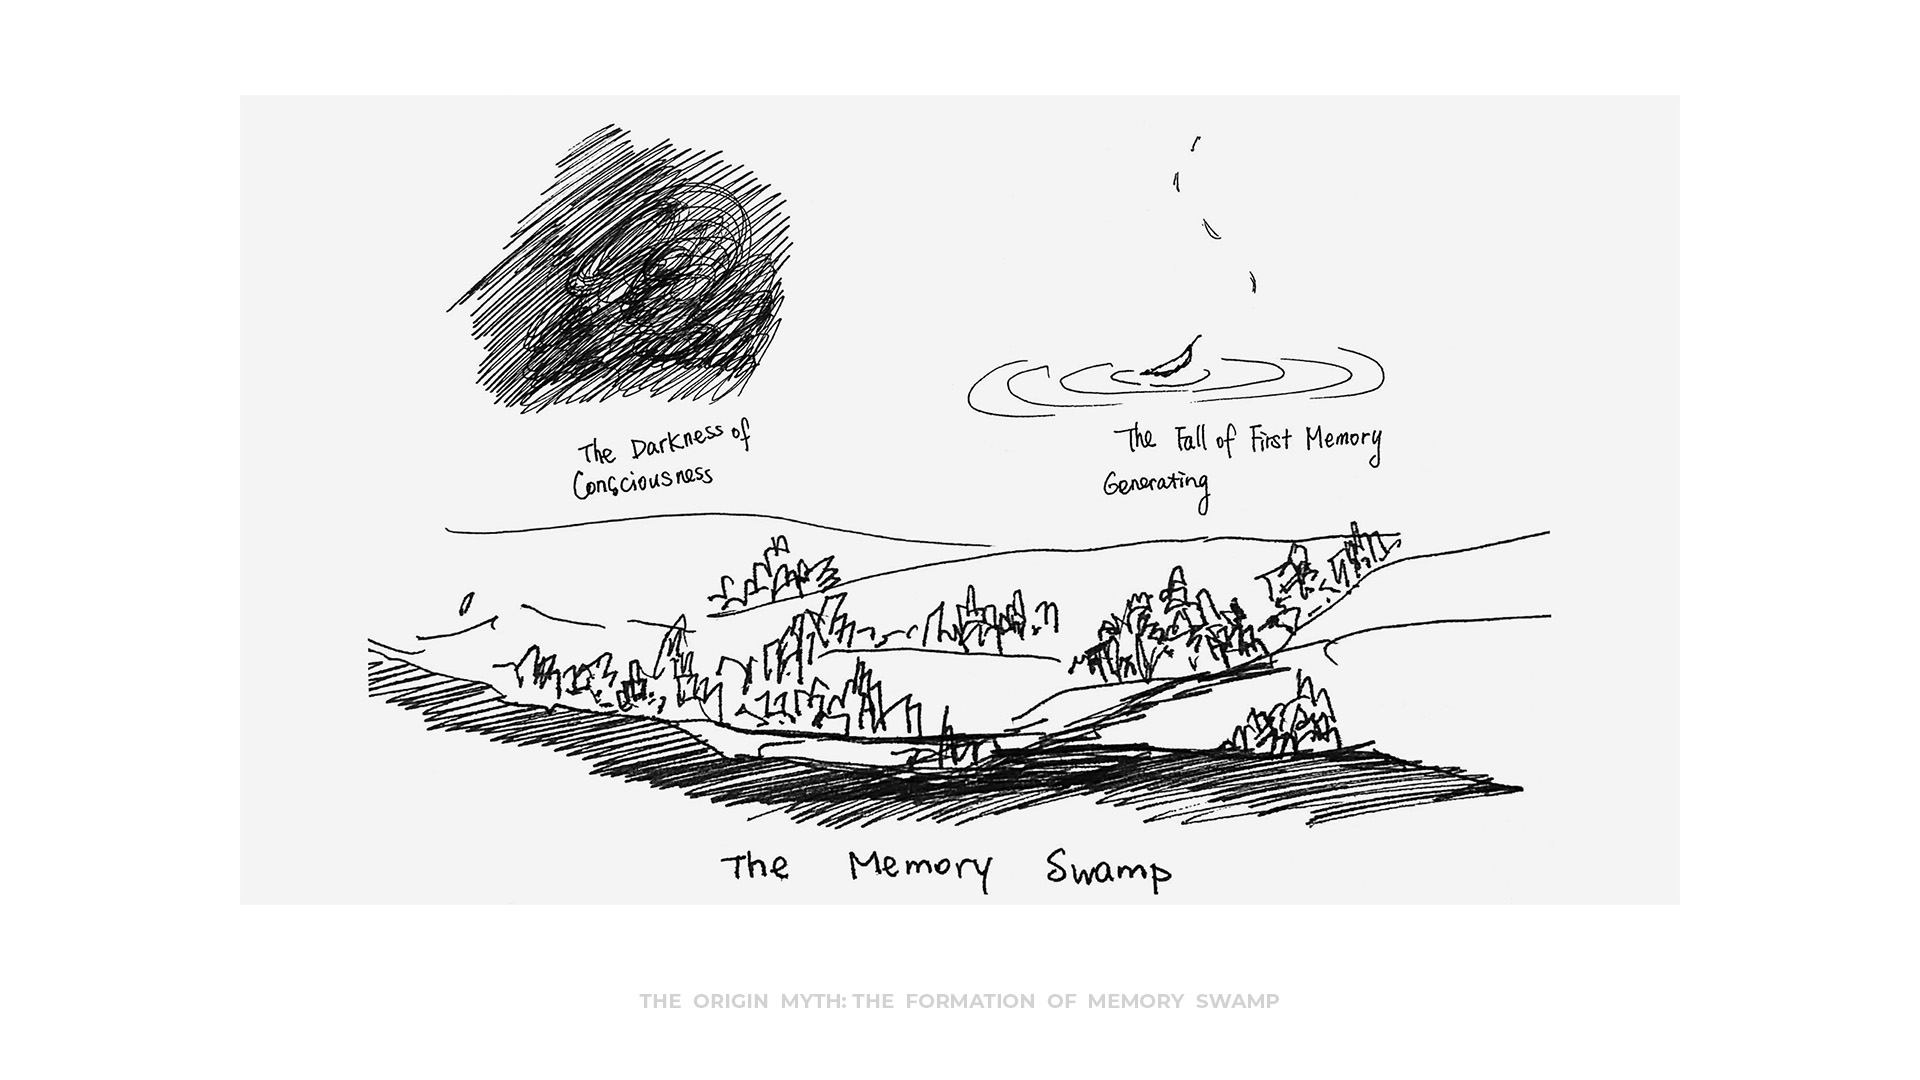 The Darkness of
Consciousness
The Fall of First Memory
Generating
The Memory Swamp
THE ORIGIN MYTH: THE FORMATION OF MEMORY SWAMP